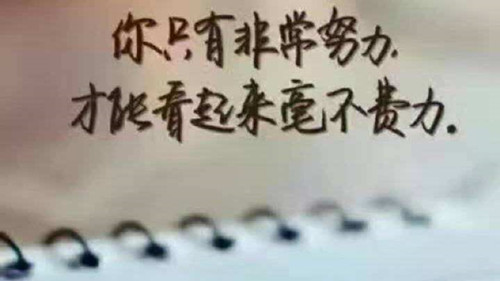 你只有非常努力
才能看起来毫不费力.